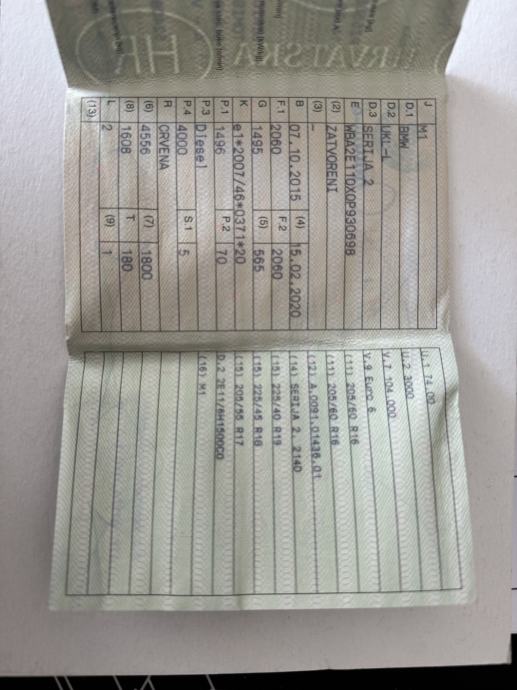 HRVATSKA
HR
J M1
D.1 BMW
D.2 UKL-L
D.3 SERIJA 2
E WBA2E1110X0P930698
(2) ZATVORENI
(3) –
B 07.10.2015 (4) 15.02.2020
F.1 2060 F.2 2060
G 1495 (5) 565
K e1*2007/46*0371*20
P.1 1496 P.2 70
P.3 Diesel
P.4 4000 S.1 5
R CRVENA
(6) 4556 (7) 1800
(8) 1608 T 180
L 2 (9) 1
(13)
U.1 74.00
U.2 3000
V.7 104.000
V.9 Euro 6
(11) 205/60 R16
(11) 205/60 R16
(12) A.0091.01436.01
(14) SERIJA 2. 214D
(15) 225/40 R19
(15) 225/45 R18
(15) 205/55 R17
D.2 2E11/6H1500C0
(16) M1